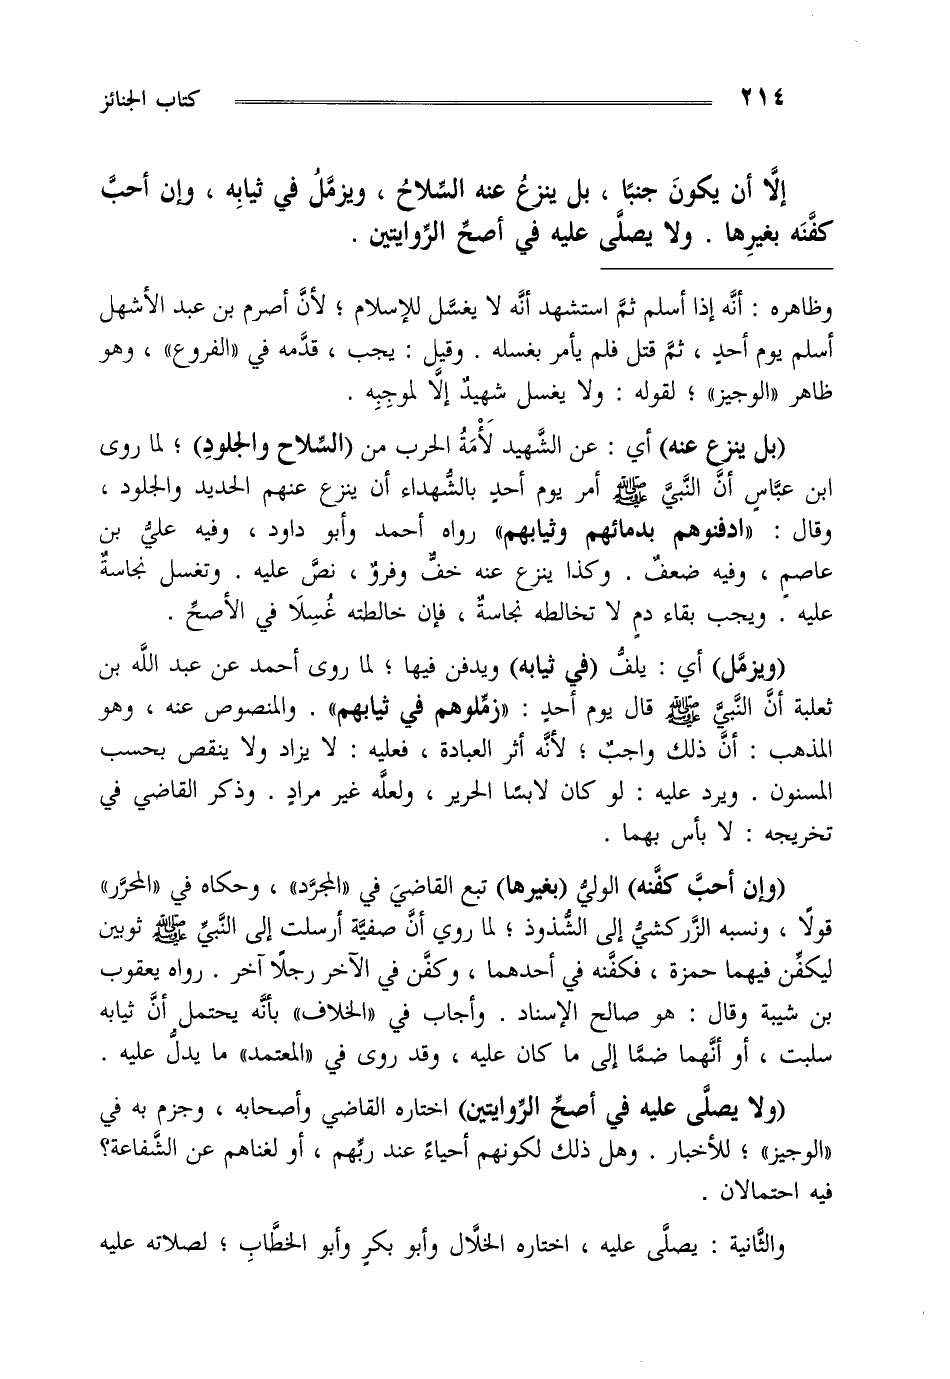 ٢١٤ كتاب الجنائز
إلَّا أن يكونَ جنبًا ، بل ينزعُ عنه السِّلاحُ ، ويزمَّلُ في ثيابِه ، وإن أحبَّ
كفَّنَه بغيرِها . ولا يصلَّى عليه في أصحِّ الرِّوايتين .
وظاهره : أنَّه إذا أسلم ثمَّ استشهد أنَّه لا يغسَّل للإسلام ؛ لأنَّ أصرم بن عبد الأشهل
أسلم يوم أحدٍ ، ثمَّ قتل فلم يأمر بغسله . وقيل : يجب ، قدَّمه في «الفروع» ، وهو
ظاهر «الوجيز» ؛ لقوله : ولا يغسل شهيدٌ إلَّا لموجِبِه .
(بل ينزع عنه) أي : عن الشَّهيد لَأْمَةُ الحرب من (السِّلاح والجلودِ) ؛ لما روى
ابن عبَّاسٍ أنَّ النَّبيَّ ﷺ أمر يوم أحدٍ بالشُّهداء أن ينزع عنهم الحديد والجلود ،
وقال : «ادفنوهم بدمائهم وثيابهم» رواه أحمد وأبو داود ، وفيه عليُّ بن
عاصمٍ ، وفيه ضعفٌ . وكذا ينزع عنه خفٌّ وفروٌ ، نصَّ عليه . وتغسل نجاسةٌ
عليه . ويجب بقاء دمٍ لا تخالطه نجاسةٌ ، فإن خالطته غُسِلَا في الأصحِّ .
(ويزمَّل) أي : يلفُّ (في ثيابه) ويدفن فيها ؛ لما روى أحمد عن عبد اللَّه بن
ثعلبة أنَّ النَّبيَّ ﷺ قال يوم أحدٍ : «زمِّلوهم في ثيابهم» . والمنصوص عنه ، وهو
المذهب : أنَّ ذلك واجبٌ ؛ لأنَّه أثر العبادة ، فعليه : لا يزاد ولا ينقص بحسب
المسنون . ويرد عليه : لو كان لابسًا الحرير ، ولعلَّه غير مرادٍ . وذكر القاضي في
تخريجه : لا بأس بهما .
(وإن أحبَّ كفَّنه) الوليُّ (بغيرها) تبع القاضيَ في «المجرَّد» ، وحكاه في «المحرَّر»
قولًا ، ونسبه الزَّركشيُّ إلى الشُّذوذ ؛ لما روي أنَّ صفيَّة أرسلت إلى النَّبيِّ ﷺ ثوبين
ليكفِّن فيهما حمزة ، فكفَّنه في أحدهما ، وكفَّن في الآخر رجلًا آخر . رواه يعقوب
بن شيبة وقال : هو صالح الإسناد . وأجاب في «الخلاف» بأنَّه يحتمل أنَّ ثيابه
سلبت ، أو أنَّهما ضمَّا إلى ما كان عليه ، وقد روى في «المعتمد» ما يدلُّ عليه .
(ولا يصلَّى عليه في أصحِّ الرِّوايتين) اختاره القاضي وأصحابه ، وجزم به في
«الوجيز» ؛ للأخبار . وهل ذلك لكونهم أحياءً عند ربِّهم ، أو لغناهم عن الشَّفاعة؟
فيه احتمالان .
والثَّانية : يصلَّى عليه ، اختاره الخلَّال وأبو بكرٍ وأبو الخطَّابِ ؛ لصلاته عليه